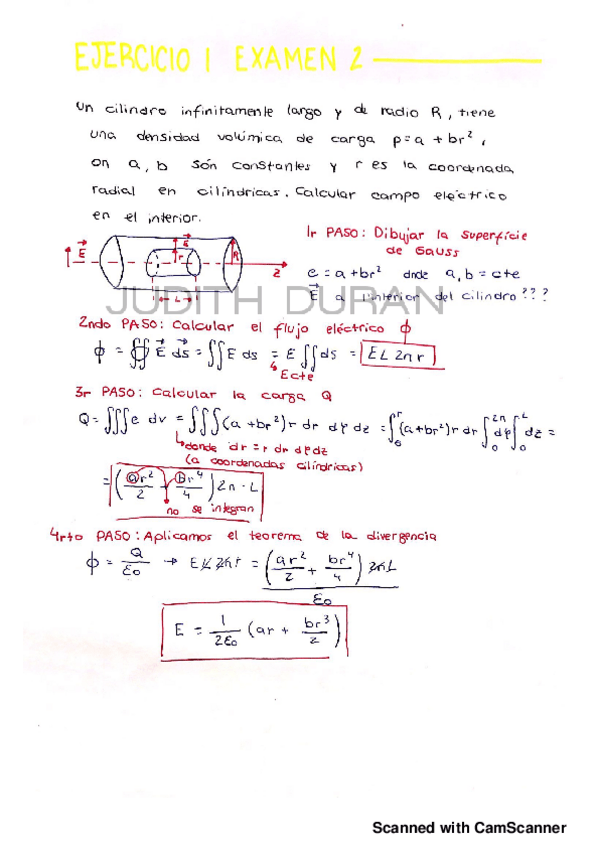 EJERCICIO 1 EXAMEN 2
Un cilindro infinitamente largo y de radio R, tiene
una densidad volúmica de carga ρ=a + br²,
on a, b són constantes y r es la coordenada
radial en cilíndricas. Calcular campo eléctrico
en el interior.
1r PASO: Dibujar la superfície
de Gauss
E E r R z L
ρ = a + br² dnde a, b = cte
E a l'interior del cilindro???
JUDITH DURAN
2ndo PASO: Calcular el flujo eléctrico ϕ
ϕ = ∯ E ds = ∬ E ds = E ∬ ds = E L 2π r
↳ E cte
3r PASO: Calcular la carga Q
Q = ∭ ρ dv = ∭ (a + br²) r dr dφ dz = ∫₀ʳ (a + br²) r dr ∫₀²π dφ ∫₀ᴸ dz =
↳ donde dr = r dr dφ dz
(a coordenadas cilíndricas)
= (ar²/2 + br⁴/4) 2π · L
no se integran
4rto PASO: Aplicamos el teorema de la divergencia
ϕ = Q/ε₀ → E L 2π r = (ar²/2 + br⁴/4) 2π L / ε₀
E = 1/2ε₀ (ar + br³/2)
Scanned with CamScanner